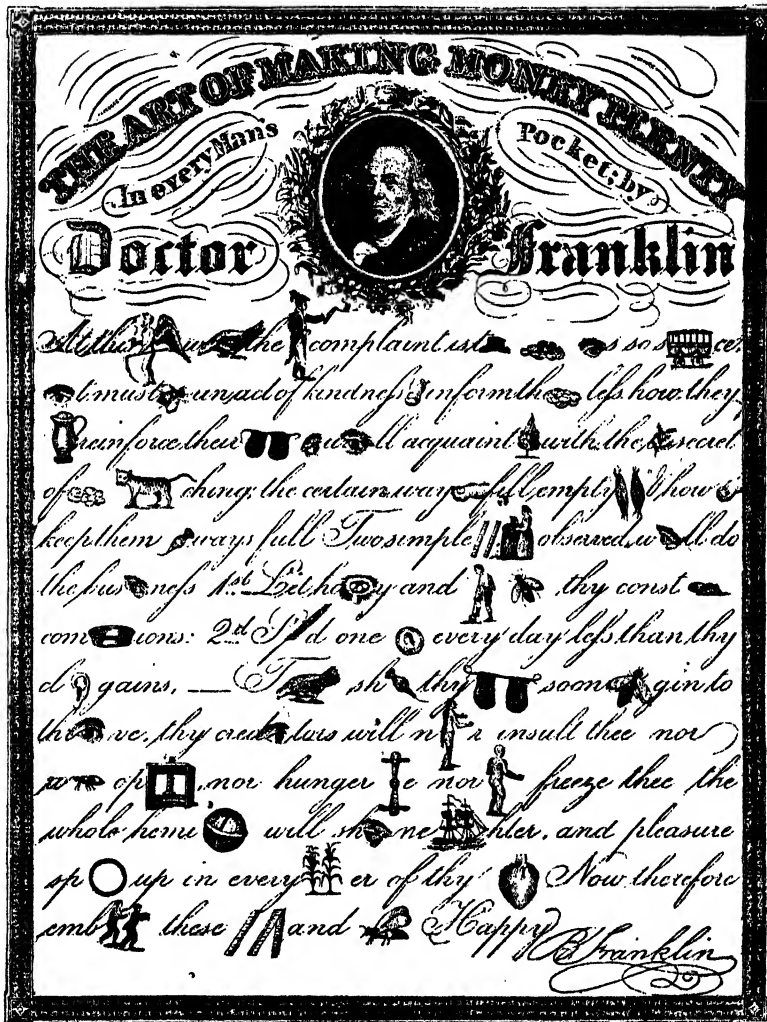 THE ART OF MAKING MONEY PLENTY
In every Man's
Pocket; by
Doctor Franklin
At this the complaint is t s so s ce,
t must un act of kindness inform the less how they
reinforce their w ll acquaint with the secret
of ching; the certain way fill empty how
keep them ways full Two simple observed, w ll do
the bus ness 1st Let h y and thy const
com ions: 2nd Sp d one every day less than thy
cl gains, — T sh thy soon gin to
th ve, thy cred tors will n r insult thee nor
w op , nor hunger e nor freeze thee the
whole hemi will sh ne hter, and pleasure
sp up in every er of thy Now therefore
emb these and Happy
B Franklin